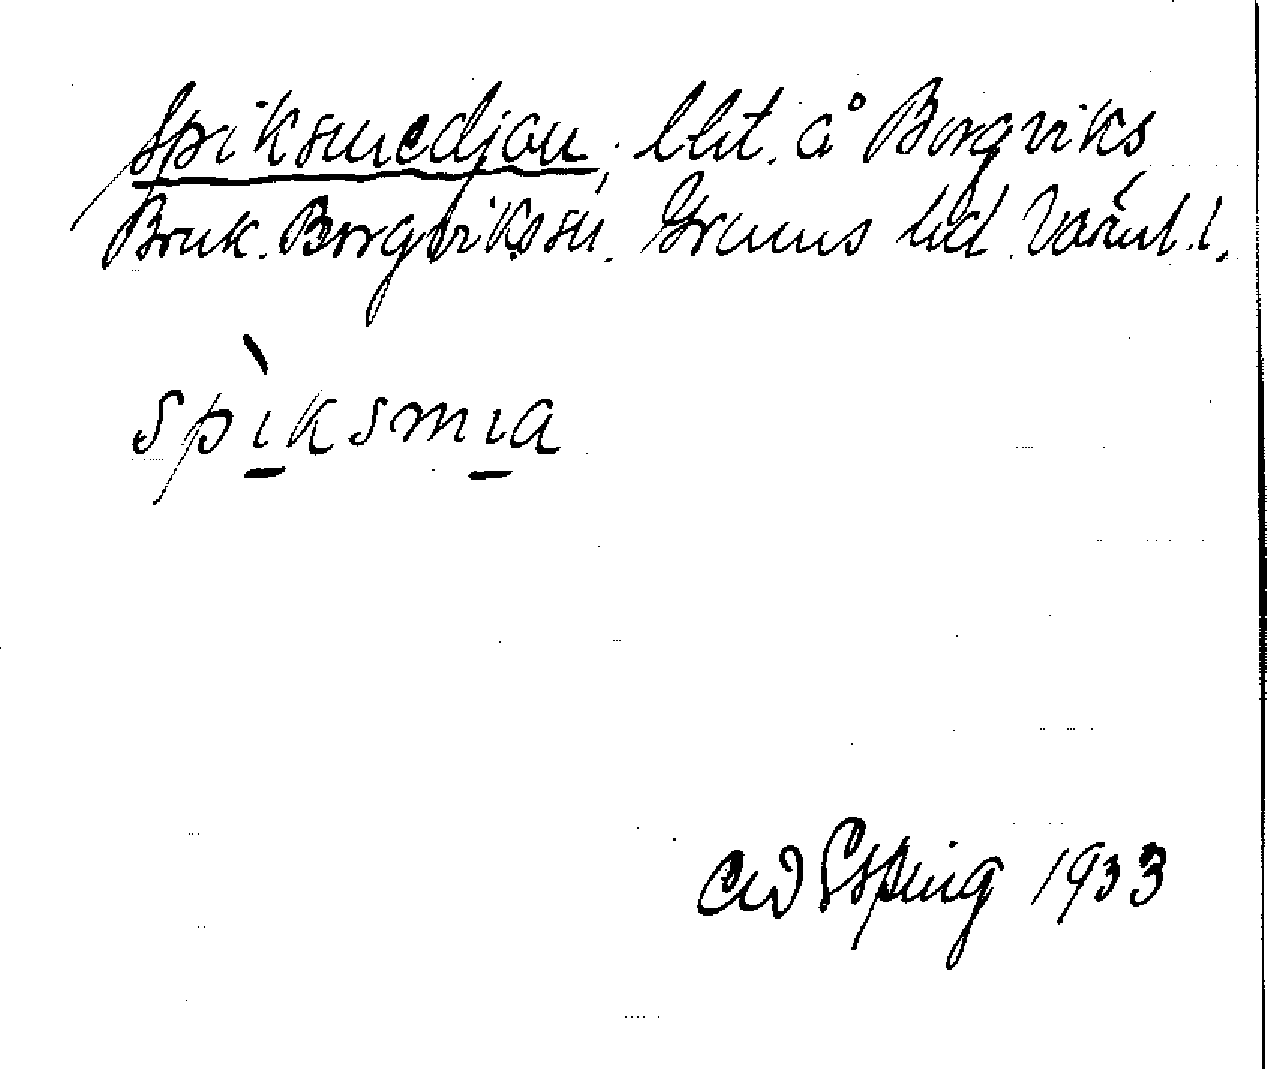 Spiksmedjan, lht. å Borgviks
Bruk. Borgviks sn. Grums hd. Värml. l.
spìksmia
Arvid Esping 1933